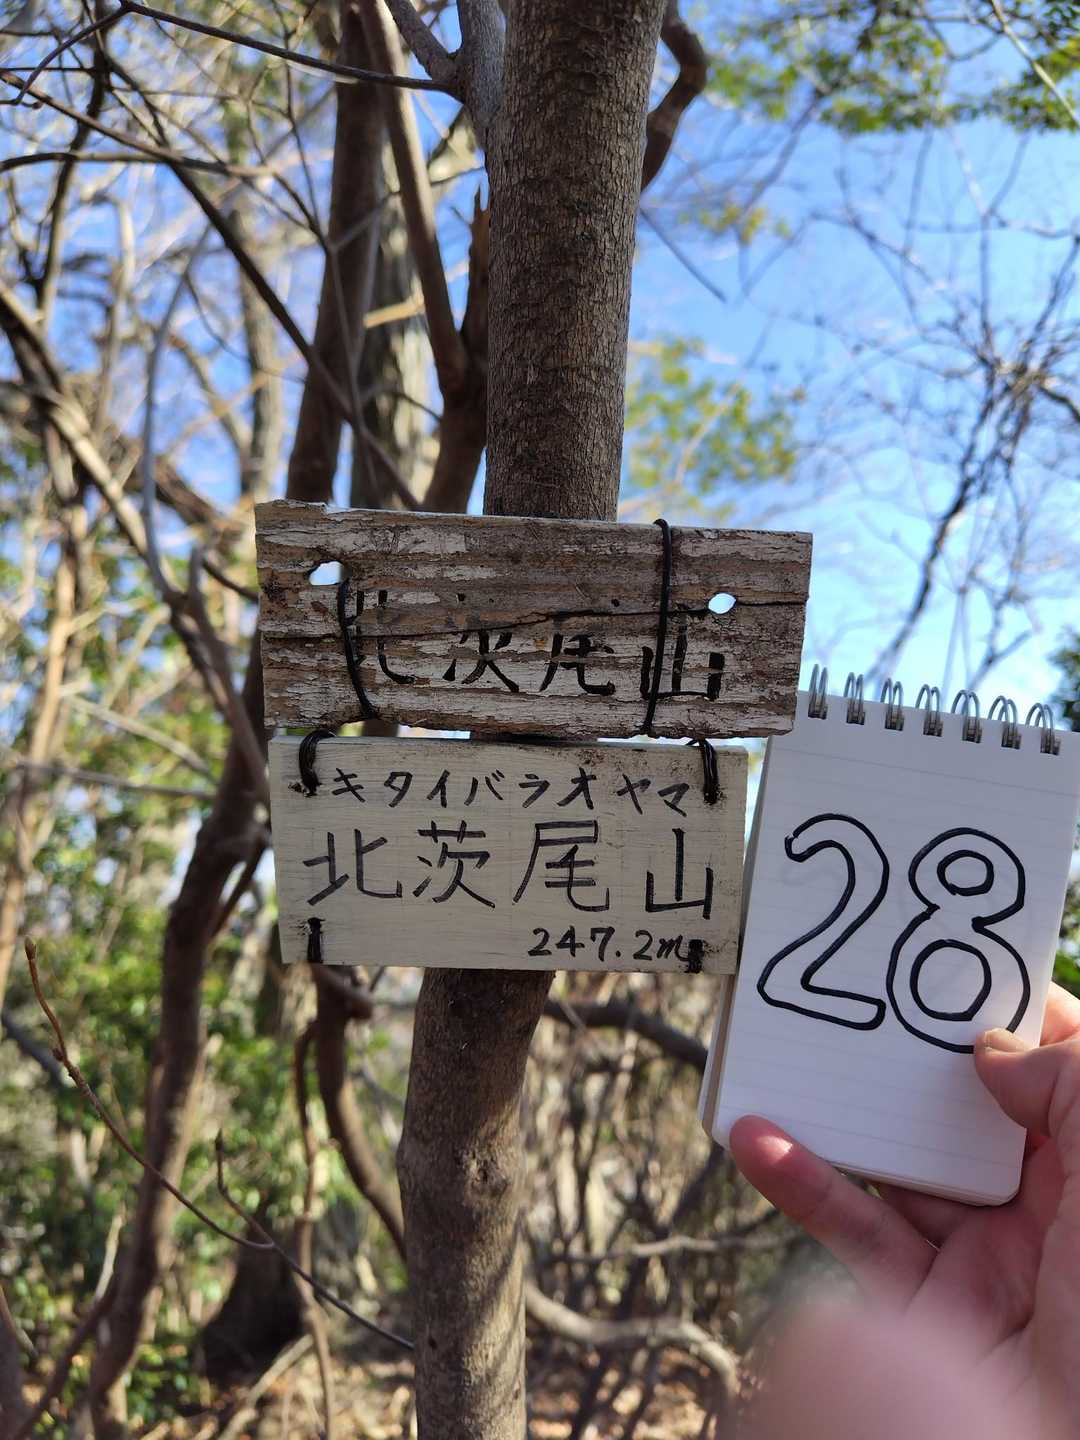 北茨尾山
キタイバラオヤマ
北茨尾山
247.2m
28